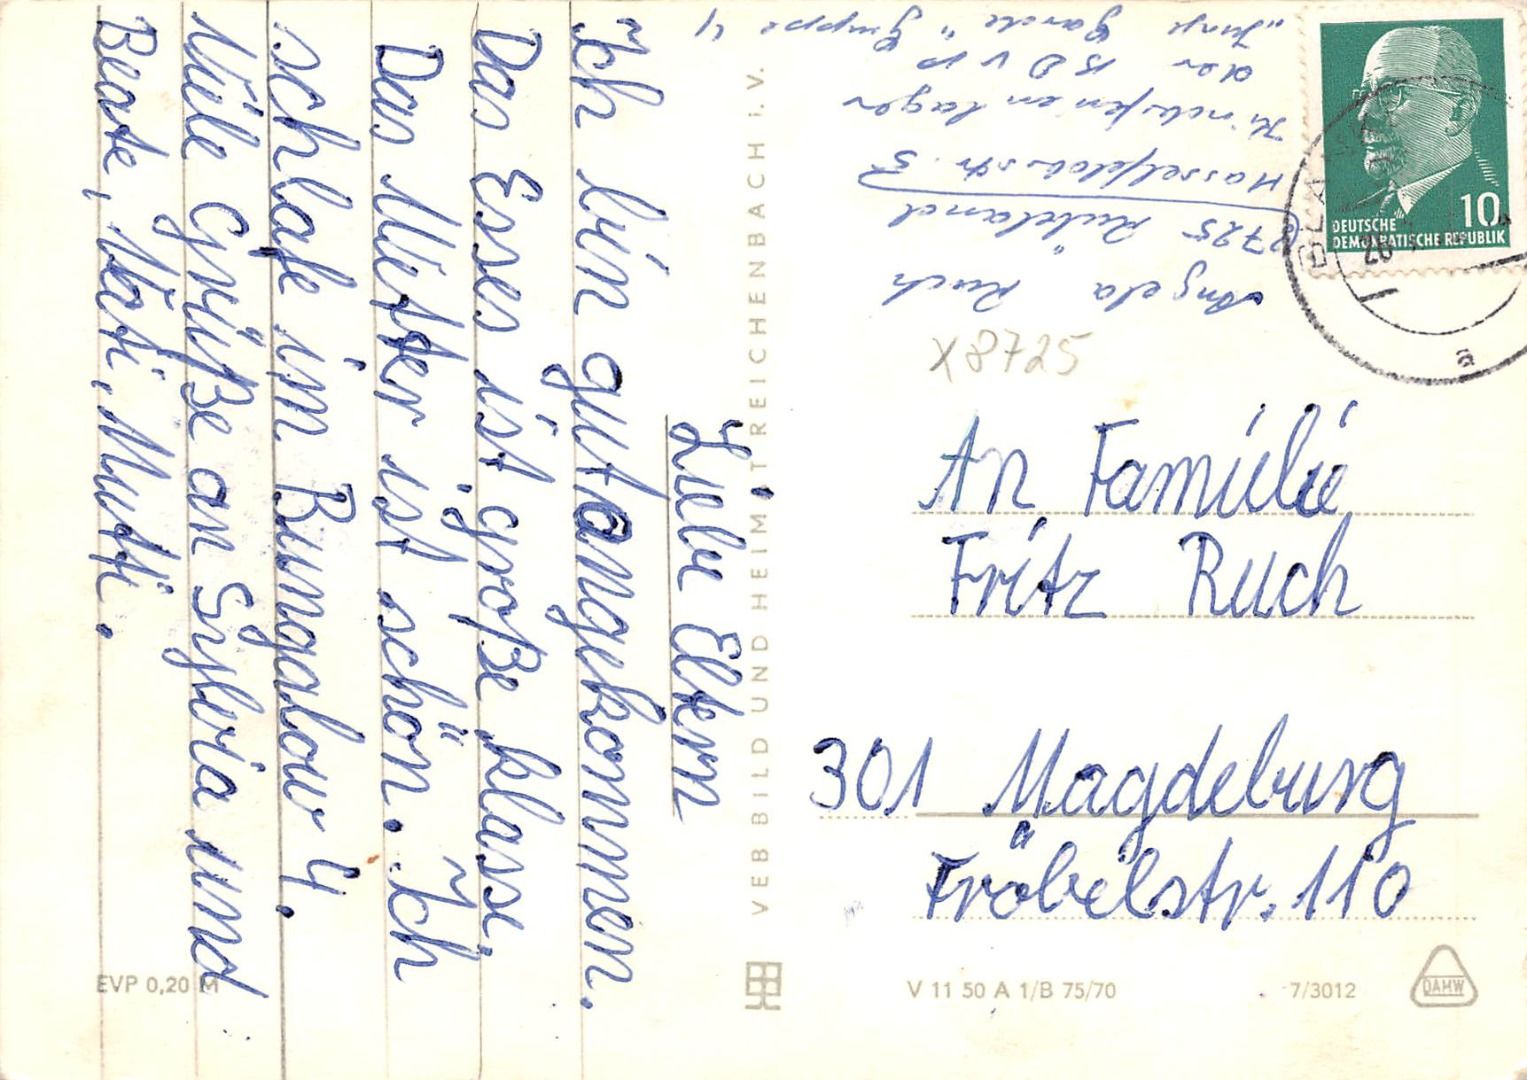 Liebe Eltern
Ich bin gut angekommen.
Das Essen ist große klasse.
Das Wetter ist schön. Ich
schlafe im Bungalow 4.
Viele Grüße an Sylvia und
Beate, Vati, Mutti.
EVP 0,20 M
VEB BILD UND HEIMAT REICHENBACH i. V.
Angela Ruch
3725 Rübeland
Hasselfelderstr. 5
Kinderferienlager
der BDVP
„Junge Garde" Gruppe 4
10
DEUTSCHE
DEMOKRATISCHE REPUBLIK
a
X8725
An Familie
Fritz Ruch
301 Magdeburg
Fröbelstr. 110
V 11 50 A 1/B 75/70
7/3012
DAMW